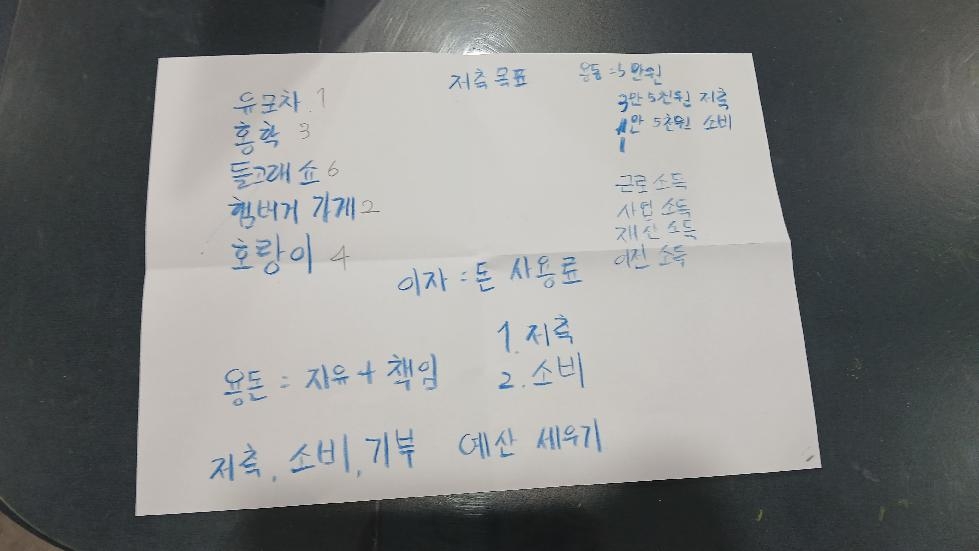 저축 목표
용돈 = 5만원
3만 5천원 저축
1만 5천원 소비
1
유모차 1
홍학 3
돌고래 쇼 6
햄버거 가게 2
호랑이 4
근로 소득
사업 소득
재산 소득
이전 소득
이자 = 돈 사용료
용돈 = 자유 + 책임
1. 저축
2. 소비
저축, 소비, 기부
예산 세우기